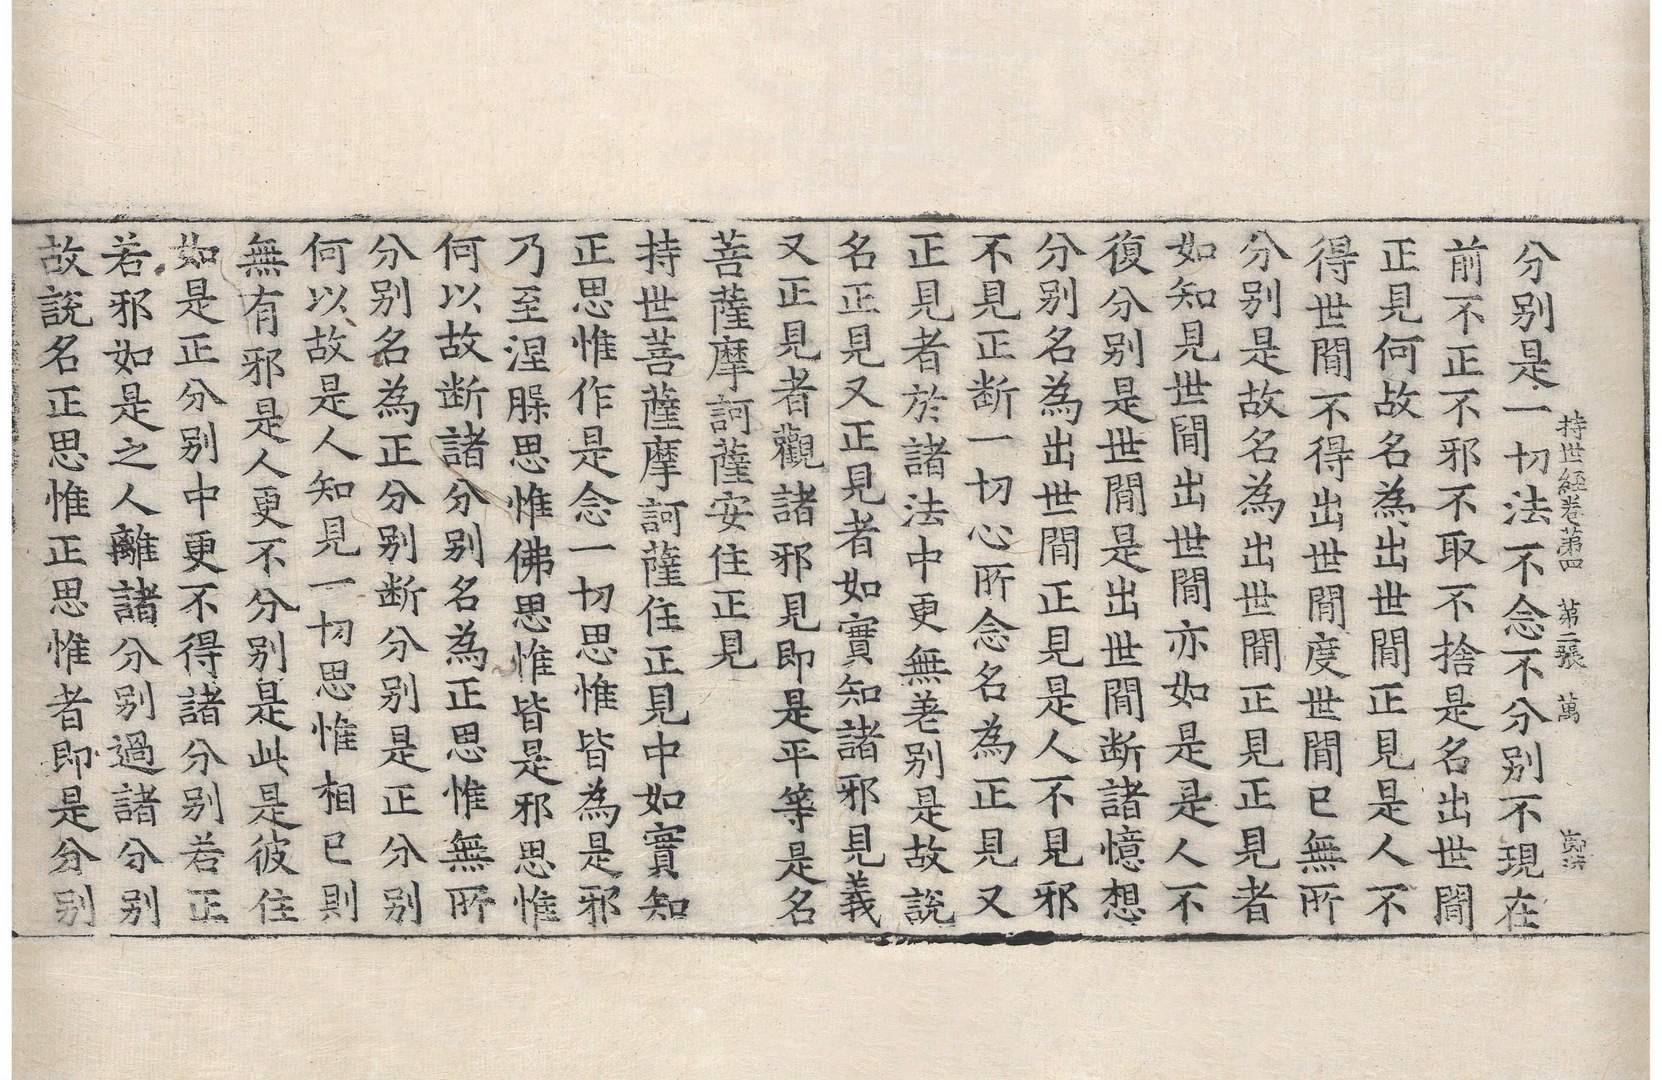 持世經卷第四　第二張　萬
分别是一切法不念不分别不現在
前不正不邪不取不捨是名出世閒
正見何故名為出世閒正見是人不
得世閒不得出世閒度世閒已無所
分别是故名為出世閒正見正見者
如知見世閒出世閒亦如是是人不
復分别是世閒是出世閒断諸憶想
分别名為出世閒正見是人不見邪
不見正断一切心所念名為正見又
正見者於諸法中更無差别是故說
名正見又正見者如實知諸邪見義
又正見者觀諸邪見即是平等是名
菩薩摩訶薩安住正見
持世菩薩摩訶薩住正見中如實知
正思惟作是念一切思惟皆為是邪
乃至涅槃思惟佛思惟皆是邪思惟
何以故断諸分别名為正思惟無所
分别名為正分别断分别是正分别
何以故是人知見一切思惟相已則
無有邪是人更不分别是此是彼住
如是正分别中更不得諸分别若正
若邪如是之人離諸分别過諸分别
故說名正思惟正思惟者即是分别